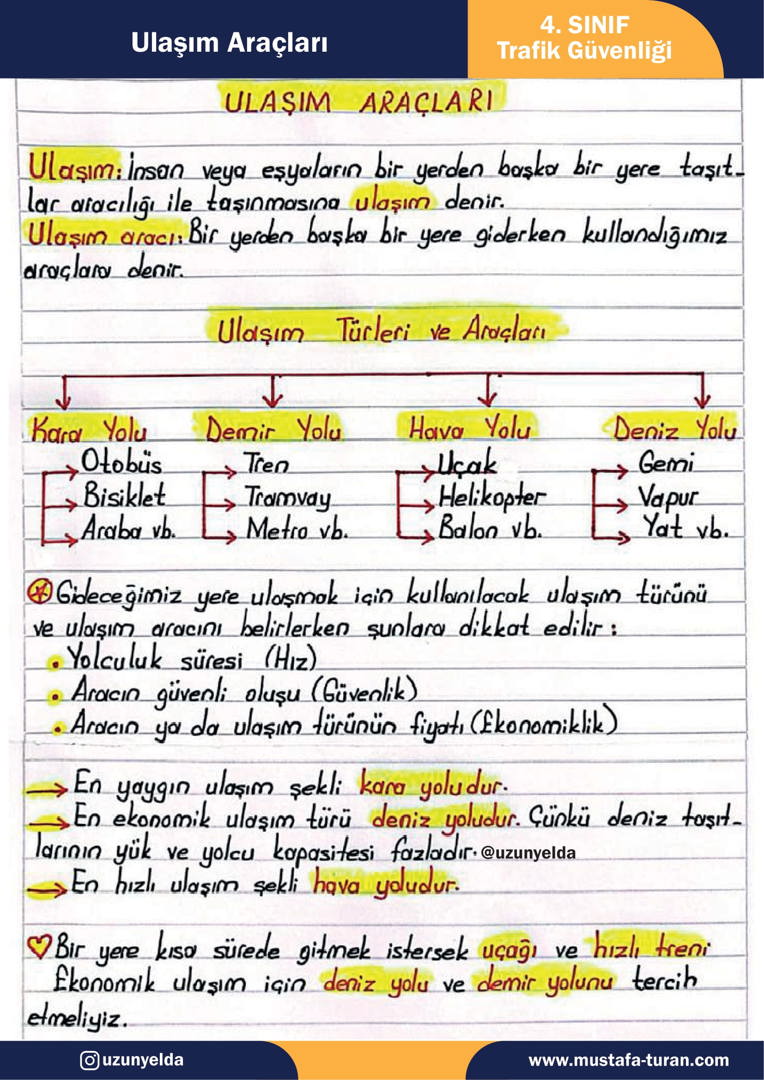 Ulaşım Araçları
4. SINIF
Trafik Güvenliği
ULAŞIM ARAÇLARI
Ulaşım: İnsan veya eşyaların bir yerden başka bir yere taşıt-
lar aracılığı ile taşınmasına ulaşım denir.
Ulaşım aracı: Bir yerden başka bir yere giderken kullandığımız
araçlara denir.
Ulaşım Türleri ve Araçları
Kara Yolu Demir Yolu Hava Yolu Deniz Yolu
Otobüs Tren Uçak Gemi
Bisiklet Tramvay Helikopter Vapur
Araba vb. Metro vb. Balon vb. Yat vb.
Gideceğimiz yere ulaşmak için kullanılacak ulaşım türünü
ve ulaşım aracını belirlerken şunlara dikkat edilir:
• Yolculuk süresi (Hız)
• Aracın güvenli oluşu (Güvenlik)
• Aracın ya da ulaşım türünün fiyatı (Ekonomiklik)
→ En yaygın ulaşım şekli kara yoludur.
→ En ekonomik ulaşım türü deniz yoludur. Çünkü deniz taşıt-
larının yük ve yolcu kapasitesi fazladır. @uzunyelda
→ En hızlı ulaşım şekli hava yoludur.
♡ Bir yere kısa sürede gitmek istersek uçağı ve hızlı treni
Ekonomik ulaşım için deniz yolu ve demir yolunu tercih
etmeliyiz.
uzunyelda
www.mustafa-turan.com